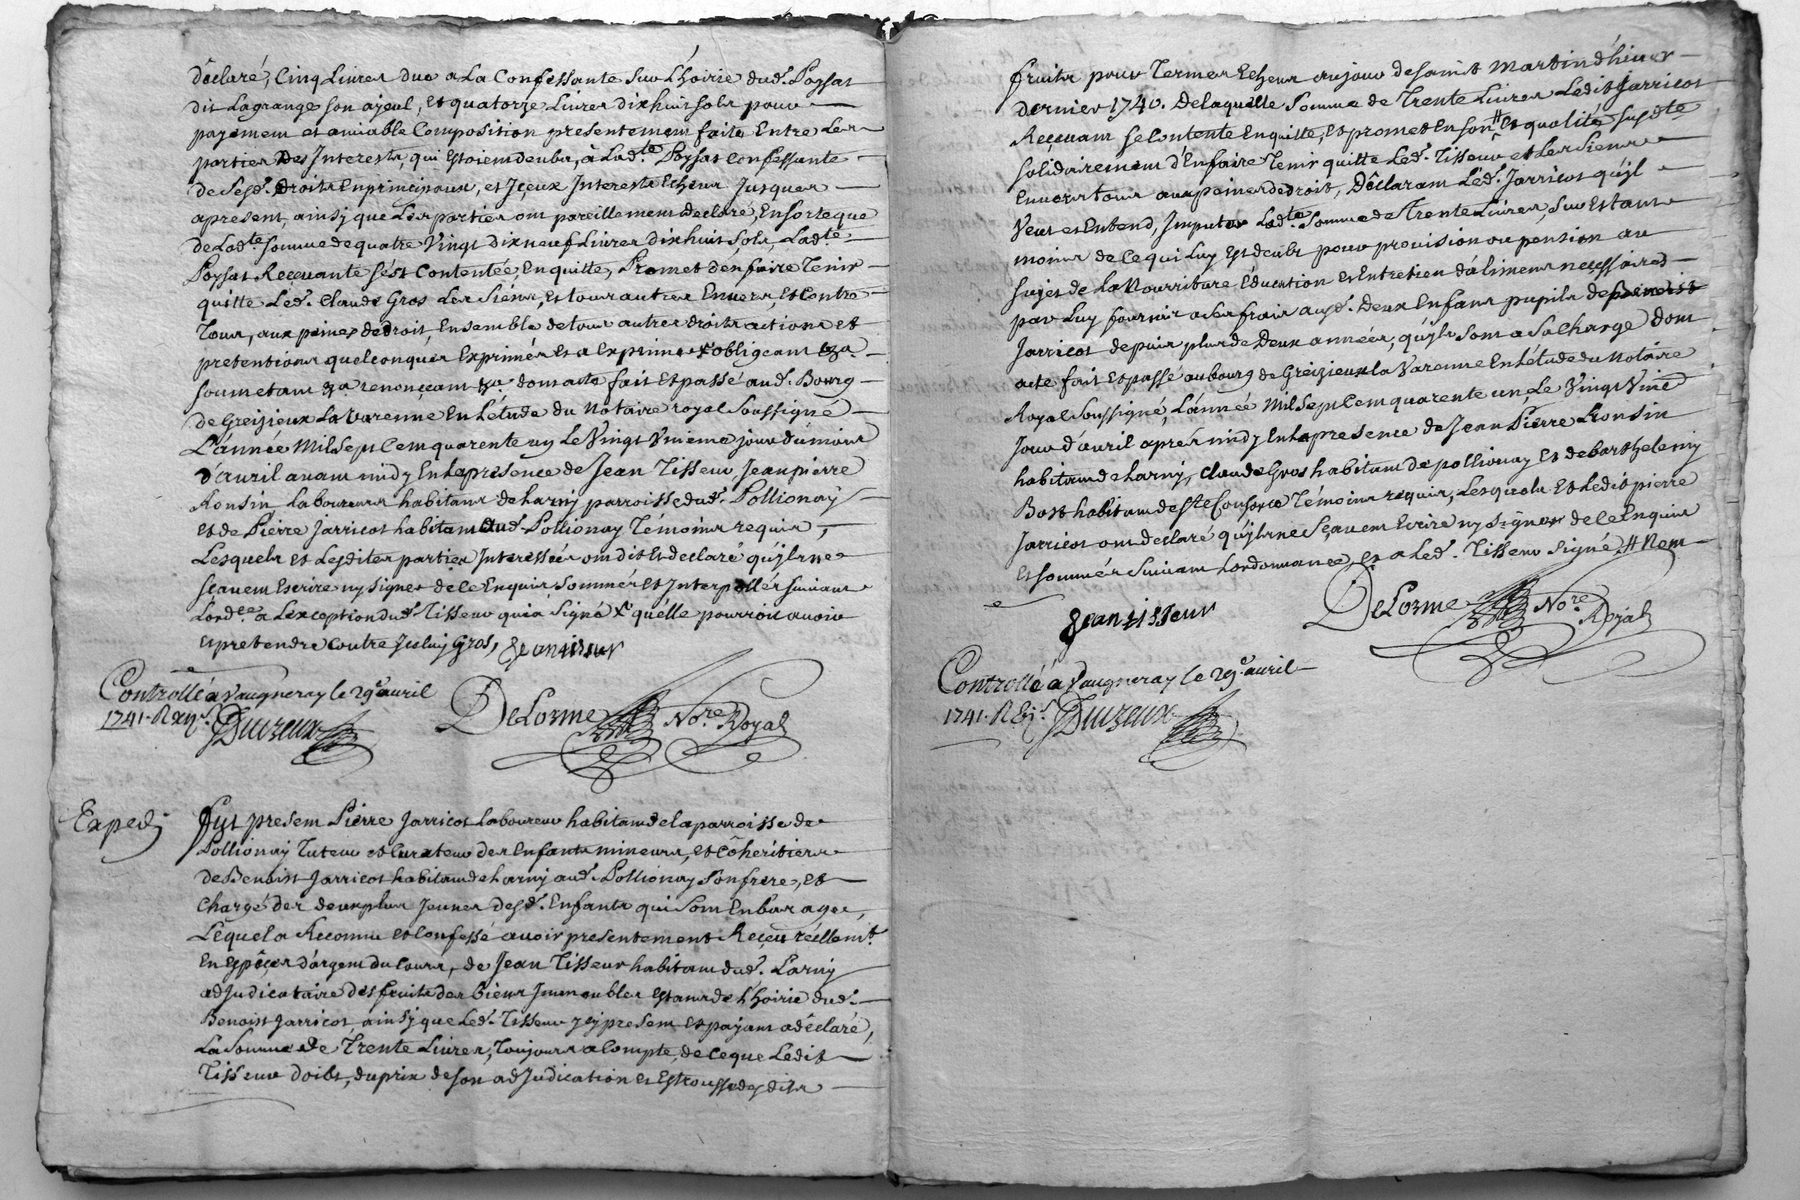 déclaré, Cinq Livres due a La Confessante Sur L'hoirie dud. Poysat
dit Lagrange son ayeul, et quatorze Livres dixhuit sols pour
payement et amiable Composition presentement faite Entre Les
parties Des Interests, qui Estoient deubs, à Lad.te Poysat confessante
de Sesd. droits En principaux, et Iceux Interests Echeus Jusques
apresent, ainsy que Les parties ont pareillement declaré, En sorte que
de Lad.te somme de quatre Vingt dix neuf Livres dixhuit Sols, Lad.te
Poysat Recevante s'est Contentée, En quitte, Promet d'en faire Tenir
quitte Led. Claude Gros Les Siens, et tous autres Envers, et Contre
Tous, aux peines de droit, Ensemble de tous autres droits actions et
pretentions quelconques Exprimés et a Exprimer obligeant &a.
soumetant &a renonçant &a dont acte fait et passé aud. Bourg
de Greizieux La Varenne En L'étude du Notaire royal Soussigné
L'année Mil Sept Cent quarente un Le Vingt Vnieme jour du mois
d'avril avant midy En La presence de Jean Tisseur Jean pierre
Ronsin Laboureurs habitans de Larny parroisse dud. Pollionay
et de Pierre Jarricot habitant dud. Pollionay Témoins requis,
Lesquels et Lesdites parties Interessées ont dit et declaré qu'ils ne
sçavent Escrire ny signer de ce Enquis Sommés et Interpellés suivant
Lord.ce a L'exception dud. Tisseur qui a Signé X quelle pourroit avoir
et pretendre contre Iceluy Gros, Jean tisseur
Controllé a Vaugneray le 29.e avril
1741. R
Duizeux
DeLorme No.re Royal
Exped.
Fut present Pierre Jarricot Laboureur habitant de la parroisse de
Pollionay Tuteur et Curateur des Enfants mineurs, et Cohéritiers
de Benoist Jarricot habitant de Larny aud. Pollionay Son frere, et
Chargé des deux plus Jeunes desd. Enfants qui Sont En bas age,
Lequel a Reconnu et Confessé avoir presentement Reçeu réellem.t
En Espêces d'argent du Cours, de Jean Tisseur habitant dud. Larny
adjudicataire des fruits des biens Immeubles Estants de L'hoirie dud.
Benoist Jarricot, ainsy que Led. Tisseur ycy present et payant a déclaré,
La Somme de Trente Livres, Toujours a Compte, de ce que Ledit
Tisseur doibt, du prix de son adjudication et Estrousse desdits
fruits pour Termes Echeus au jour de saint Martin d'hiver
dernier 1740. De laquelle Somme de Trente Livres Ledit Jarricot
Recevant se Contente En quitte, et promet En son # et qualité susd.te
solidairement d'En faire Tenir quitte Led. Tisseur et Les Siens
Envers tous aux peines de droit, Déclarant Led. Jarricot qu'yl
Veut et Entend, Imputer Lad.te Somme de Trente Livres, Sur Estant
moins de ce qui Luy Est deubt pour provision ou pension au
sujet de La Nourriture Education et Entretien d'aliments necessaires
par Luy fournir a ses frais ausd. Deux Enfans pupils de
Jarricot depuis plus de Deux années, qu'yls sont a Sa Charge dont
acte fait et passé au bourg de Greizieux la Varenne En L'étude du Notaire
Royal Soussigné, L'année Mil Sept Cent quarente un Le Vingt Vnie
Jour d'avril aprés midy En La presence de Jean Pierre Ronsin
habitant de Larny, Claude Gros habitant de pollionay et de barthelemy
Bost habitant de Ste Consorce Témoins requis, Lesquels et Ledit pierre
Jarricot ont declaré qu'yls ne Sçavent Ecrire ny Signer de ce Enquis
et sommés Suivant L'ordonnance, et a Led. Tisseur Signé # Nom
Jean tisseur
DeLorme No.re Royal
Controllé a Vaugneray le 29.e avril
1741. R
Duizeux